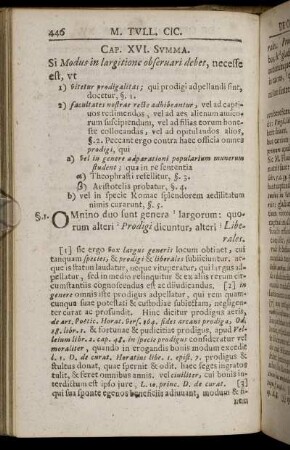 446 M. TVLL. CIC.
CAP. XVI. SVMMA.
Si Modus in largitione observari debet, necesse
est, vt
1) vitetur prodigalitas; qui prodigi adpellandi sint,
docetur, §. 1.
2) facultates nostrae recte adhibeantur, vel ad captivos
redimendos, vel ad aes alienum amicorum
suscipiendum, vel ad filias eorum honeste
collocandas, vel ad opitulandos alios,
§. 2. Peccant ergo contra haec officia omnes
prodigi, qui
a) vel in genere adparationi popularium munerum
student; qua in re sententia
Theophrasti refellitur, §. 3.
Aristotelis probatur, §. 4.
b) vel in specie Romae splendorem aedilitatum
nimis curarunt, §. 5.
§. 1. OMnino duo sunt genera largorum: quorum
alteri Prodigi dicuntur, alteri Liberales.
[1] sic ergo vox largus generis locum obtinet, cui
tanquam species, & prodigi & liberales subiiciuntur, neque
is statum laudatur, neque vituperatur, qui largus adpellatur,
sed in medio relinquitur & ex aliis rerum circumstantiis
cognoscendus est ac diiudicandus. [2] in
genere omnis iste prodigus adpellatur, qui rem quamcunque
suae potestati & custodiae subiectam, negligenter
curat ac profundit. Hinc dicitur prodigus aeris,
de art. Poetic. Horat. vers. 164. fides arcani prodiga, Od.
18. libr. 1. & fortunae & pudicitiae prodigus, apud Velleium
libr. 2. cap. 48. in specie prodigus consideratur vel
moraliter, quando in erogandis bonis modum excedit
l. 1. D. de curat. Horatius libr. 1. epist. 7. prodigus &
stultus donat, quae spernit & odit, haec seges ingratos
tulit, & feret omnibus annis. vel civiliter, cui bonis interdictum
est ipso jure, L. 10. princ. D. de curat. [3]
qui sua sponte egenos beneficiis adiuuant, modum & finem